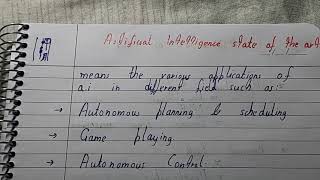 Artificial Intelligence state of the art
means the various applications of
a.i in different field such as:
→ Autonomous planning & scheduling
→ Game playing
→ Autonomous Control: